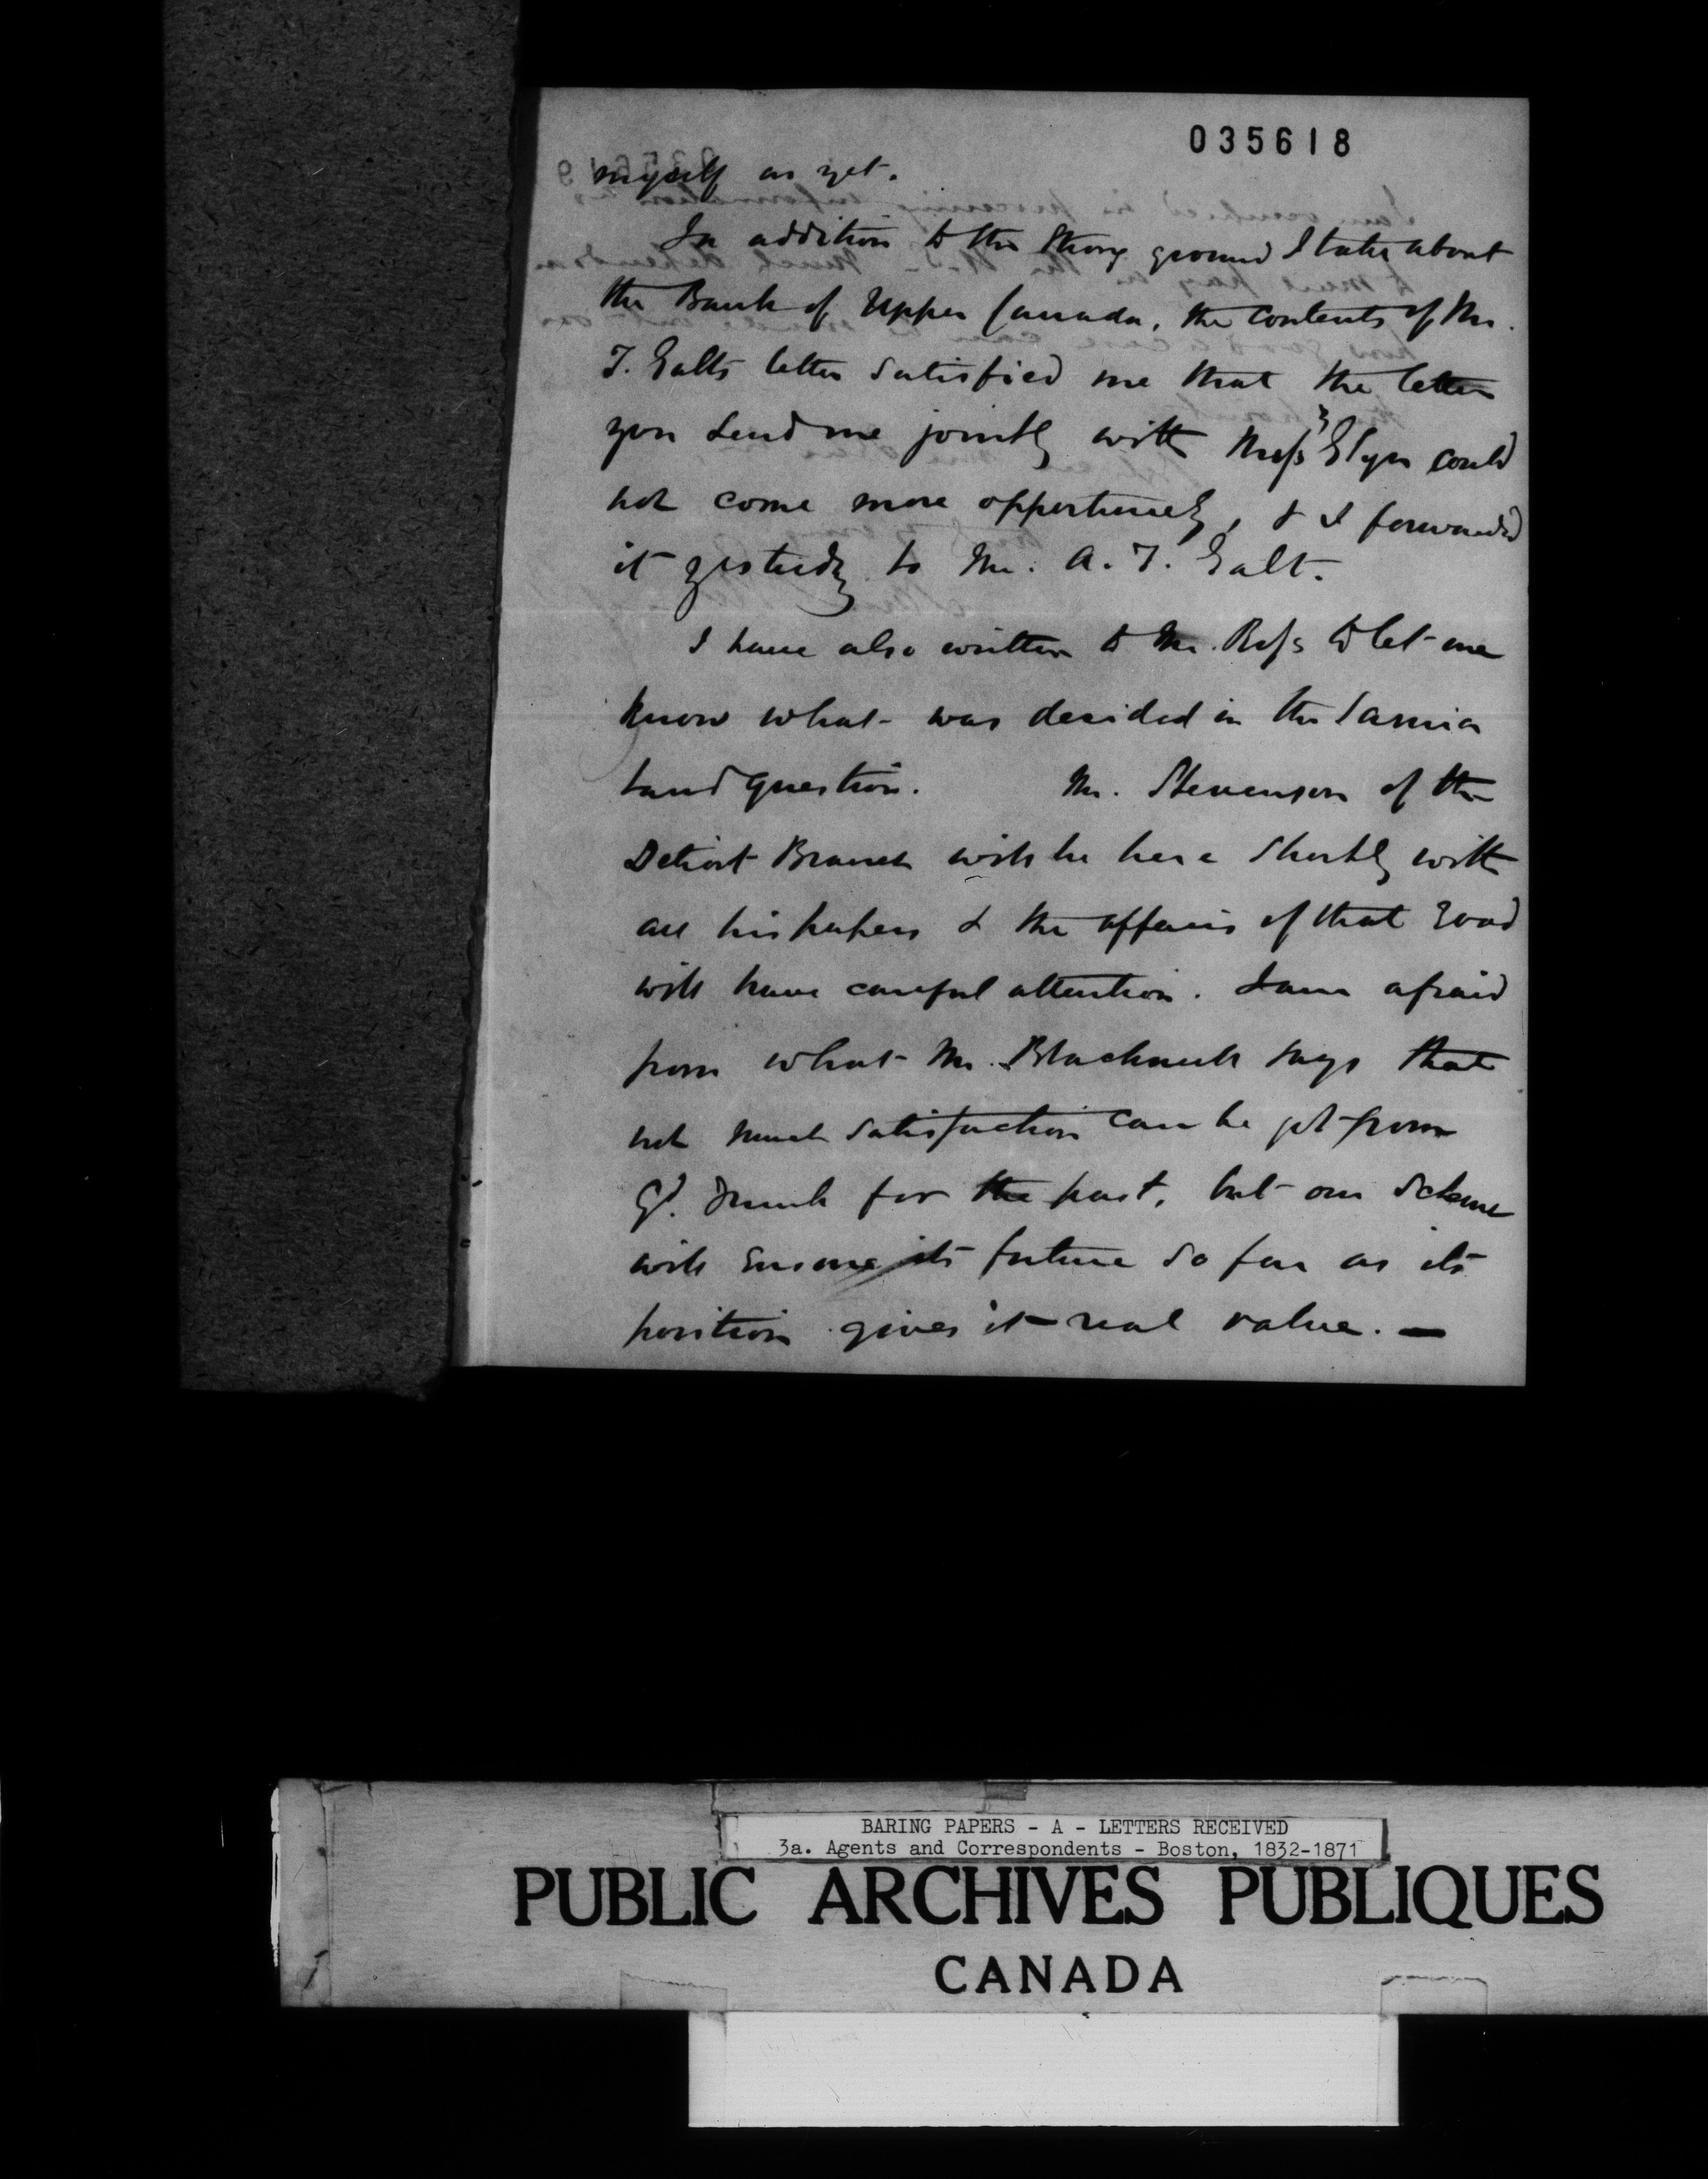 035618
myself as yet.
In addition to the strong ground I take about
the Bank of Upper Canada, the contents of Mr.
T. Galts letter satisfied me that the letter
you send me jointly with Messrs Glyn could
not come more opportunely, & I forwarded
it yesterdy to Mr. A. T. Galt.
I have also written to Mr. Ross to let me
know what was decided in the Sarnia
Land question. Mr. Stevenson of the
Detroit Branch will be here shortly with
all his papers & the affairs of that road
will have careful attention. I am afraid
from what Mr. Blackwell says that
not much satisfaction can be got from
Gd. Trunk for the past, but our scheme
will ensure its future so far as its
position gives it real value. —
BARING PAPERS - A - LETTERS RECEIVED
3a. Agents and Correspondents - Boston, 1832-1871
PUBLIC ARCHIVES PUBLIQUES
CANADA